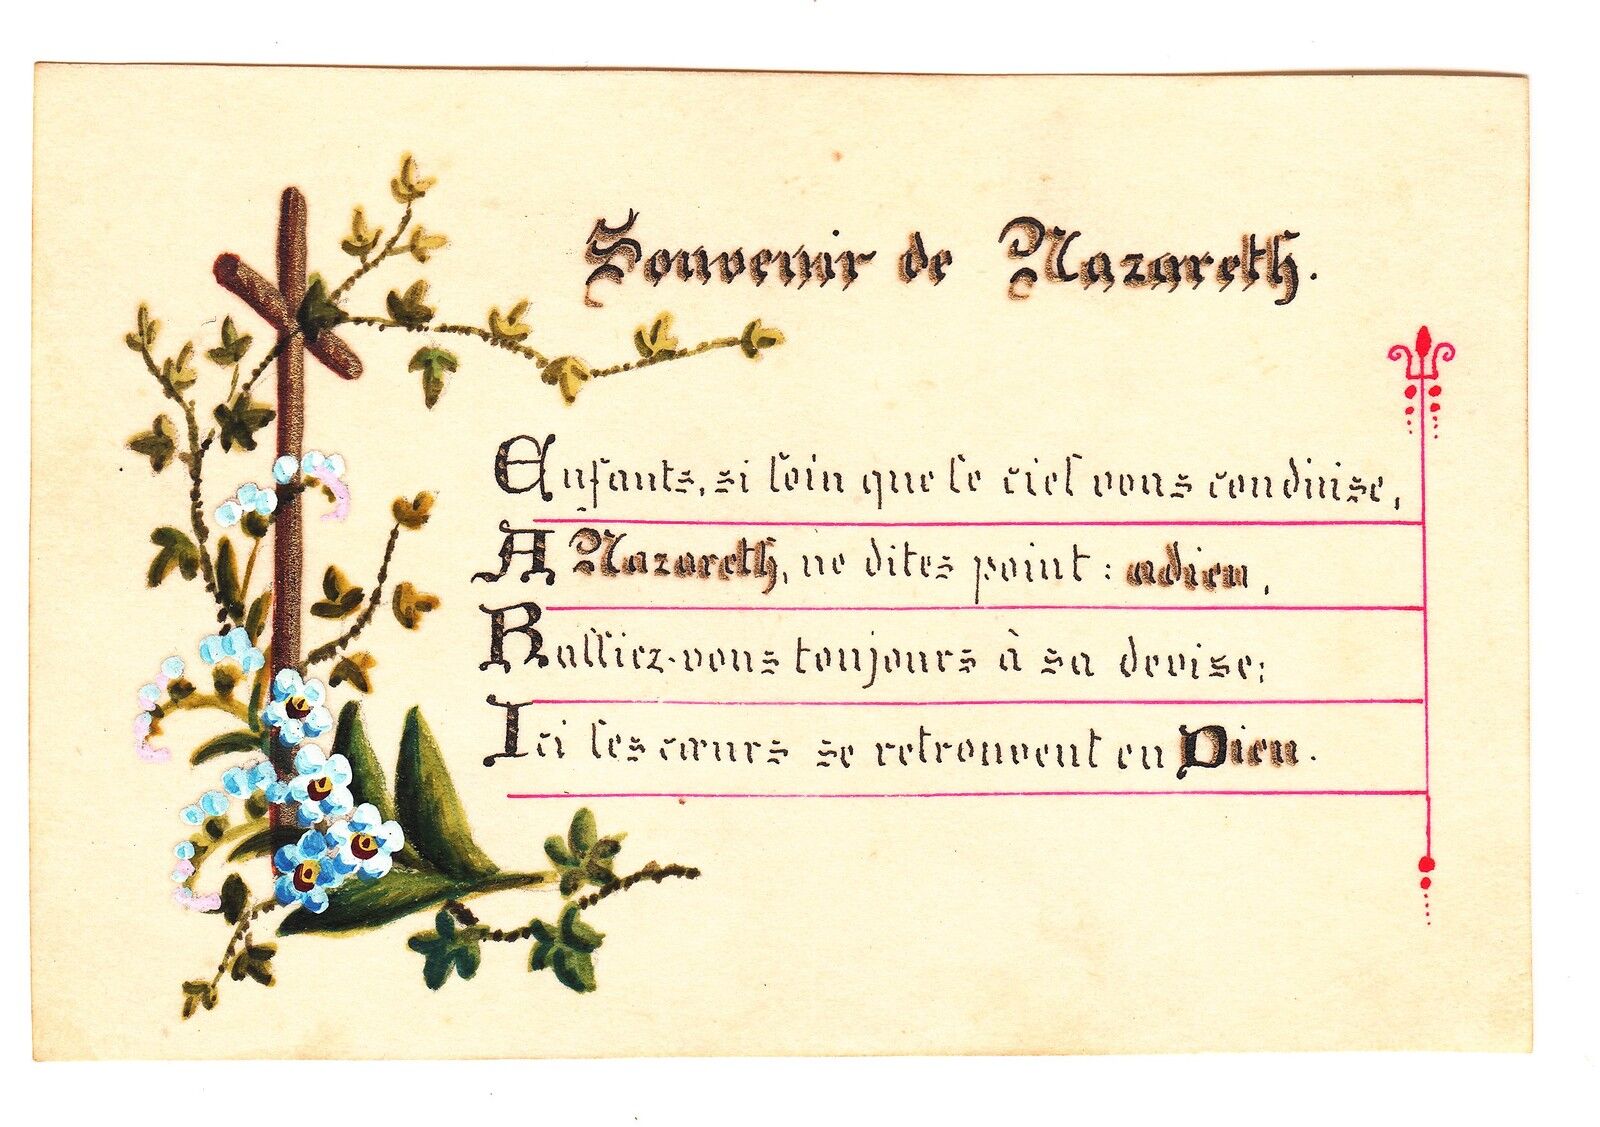 Souvenir de Nazareth.
Enfants, si loin que le ciel vous conduise,
A Nazareth, ne dites point : adieu,
Ralliez-vous toujours à sa devise;
Ici les cœurs se retrouvent en Dieu.